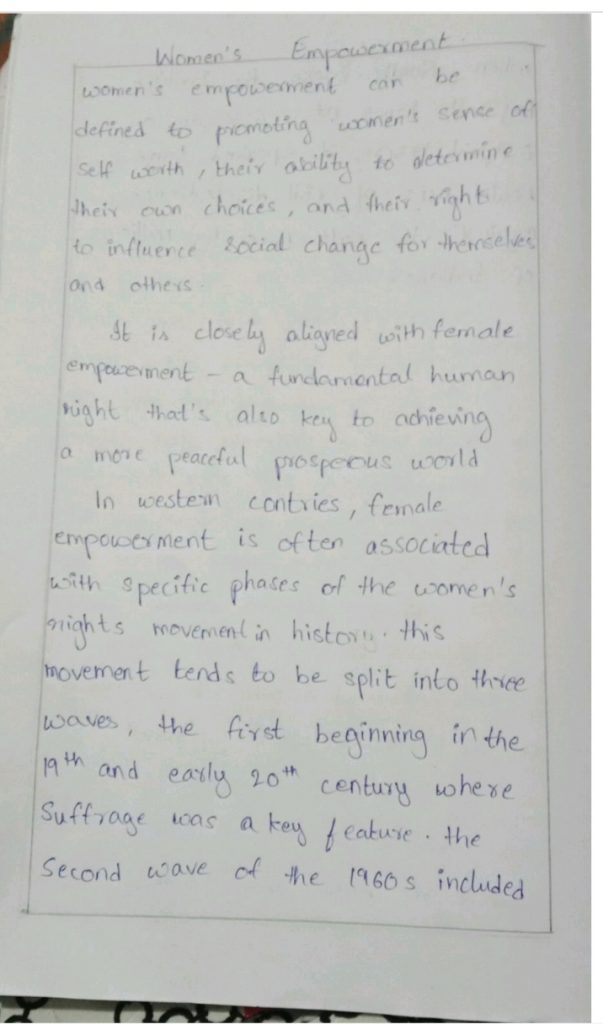 Women's Empowerment.
women's empowerment can be
defined to promoting women's sense of
self worth, their ability to determine
their own choices, and their right
to influence social change for themselves
and others.
It is closely aligned with female
empowerment - a fundamental human
right that's also key to achieving
a more peaceful prosperous world
In western contries, female
empowerment is often associated
with specific phases of the women's
rights movement in history. this
movement tends to be split into three
waves, the first beginning in the
19th and early 20th century where
Suffrage was a key feature. the
Second wave of the 1960s included